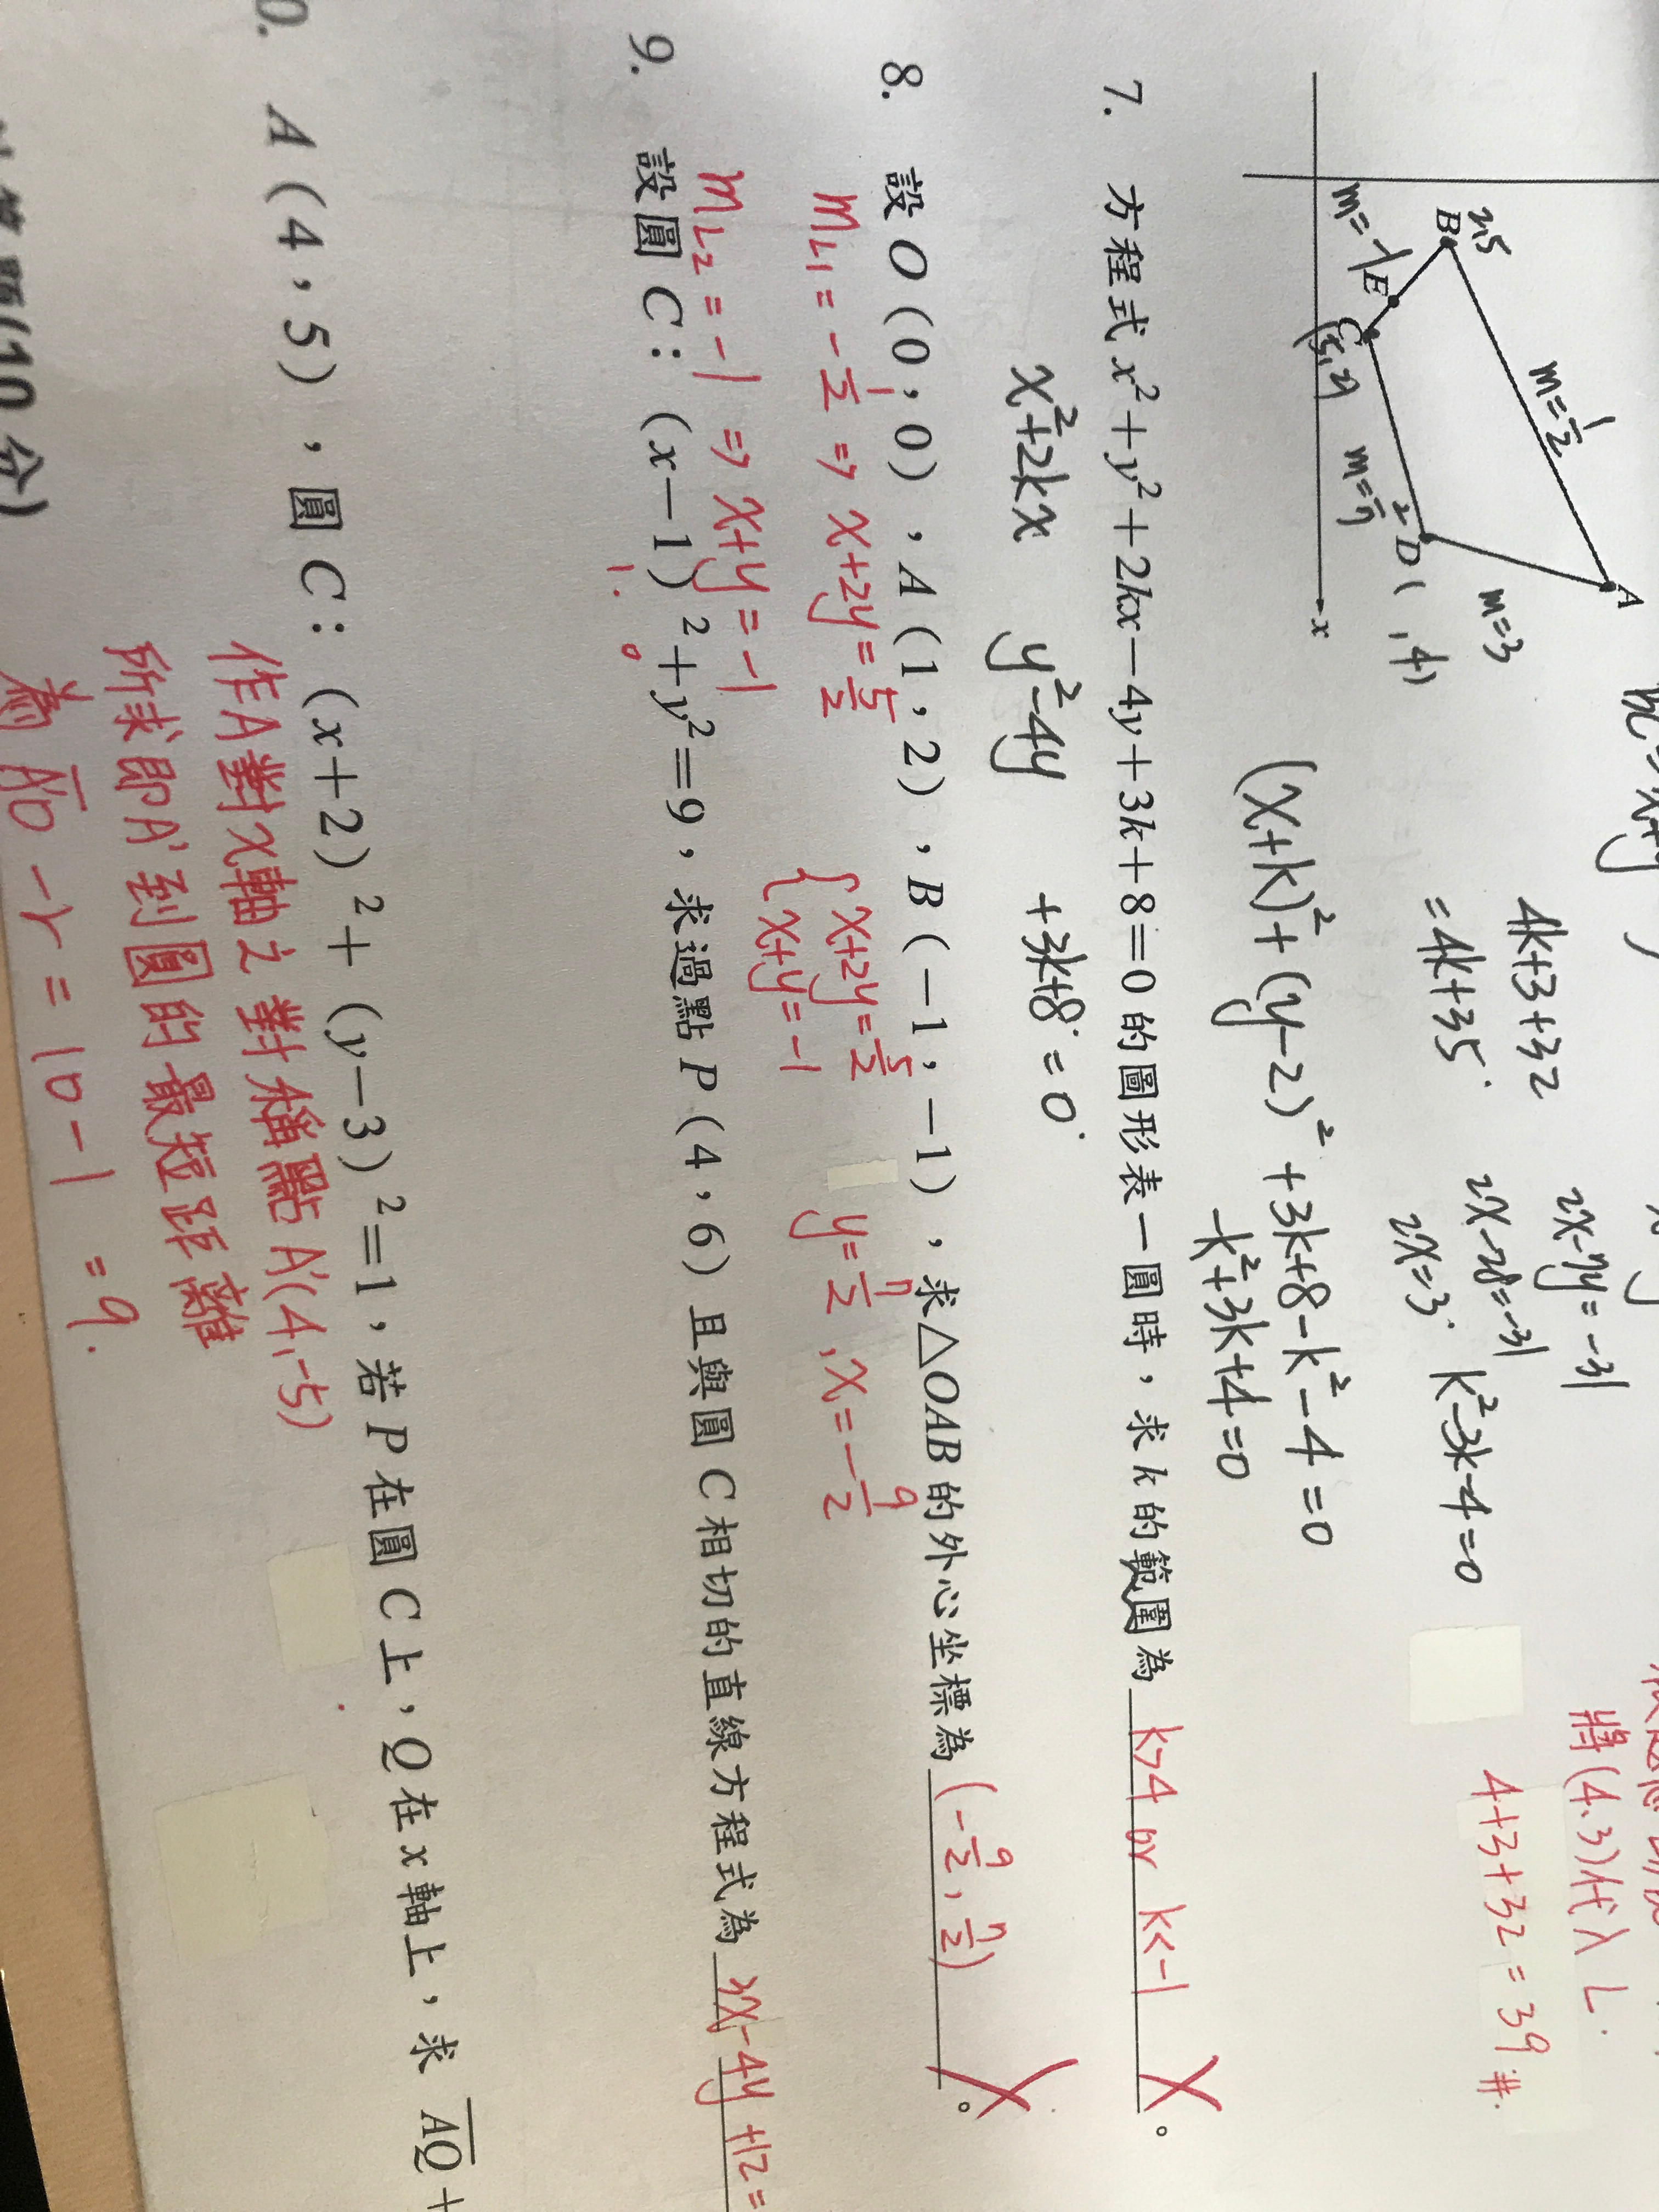 4k+3+32
=4k+35
2x-7y=-31
2x-28=-31
2x=3
將(4,3)代入L.
4+3+32=39#
A
B
2,5
m=1/2
m=3
D( ,4)
m=2/7
C
(5,2)
E
m=-1
x
(x+k)²+(y-2)²+3k+8-k²-4=0
-k²+3k+4=0
k²-3k-4=0
7. 方程式x²+y²+2kx-4y+3k+8=0的圖形表一圓時，求k的範圍為 k>4 or k<-1 。
x²+2kx y²-4y +3k+8=0
8. 設O(0,0)，A(1,2)，B(-1,-1)，求△OAB的外心坐標為 (-9/2, 7/2) 。
mL1=-1/2 ⇒ x+2y=5/2
mL2=-1 ⇒ x+y=-1
{x+2y=5/2
x+y=-1
y=7/2, x=-9/2
9. 設圓C：(x-1)²+y²=9，求過點P(4,6)且與圓C相切的直線方程式為 3x-4y+12=
1. 0
0. A(4,5)，圓C：(x+2)²+(y-3)²=1，若P在圓C上，Q在x軸上，求AQ+
作A對x軸之對稱點A'(4,-5)
所求即A'到圓的最短距離
為A'O-r=10-1=9.
(10分)